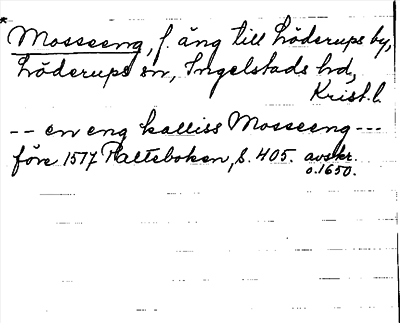 * Mosseeng, f. äng till Löderups by,
Löderups sn, Ingelstads hd,
Krist. l.
-- en eng kalliss Mosseeng ---
före 1517 Palteboken, s. 405. avskr.
o. 1650.